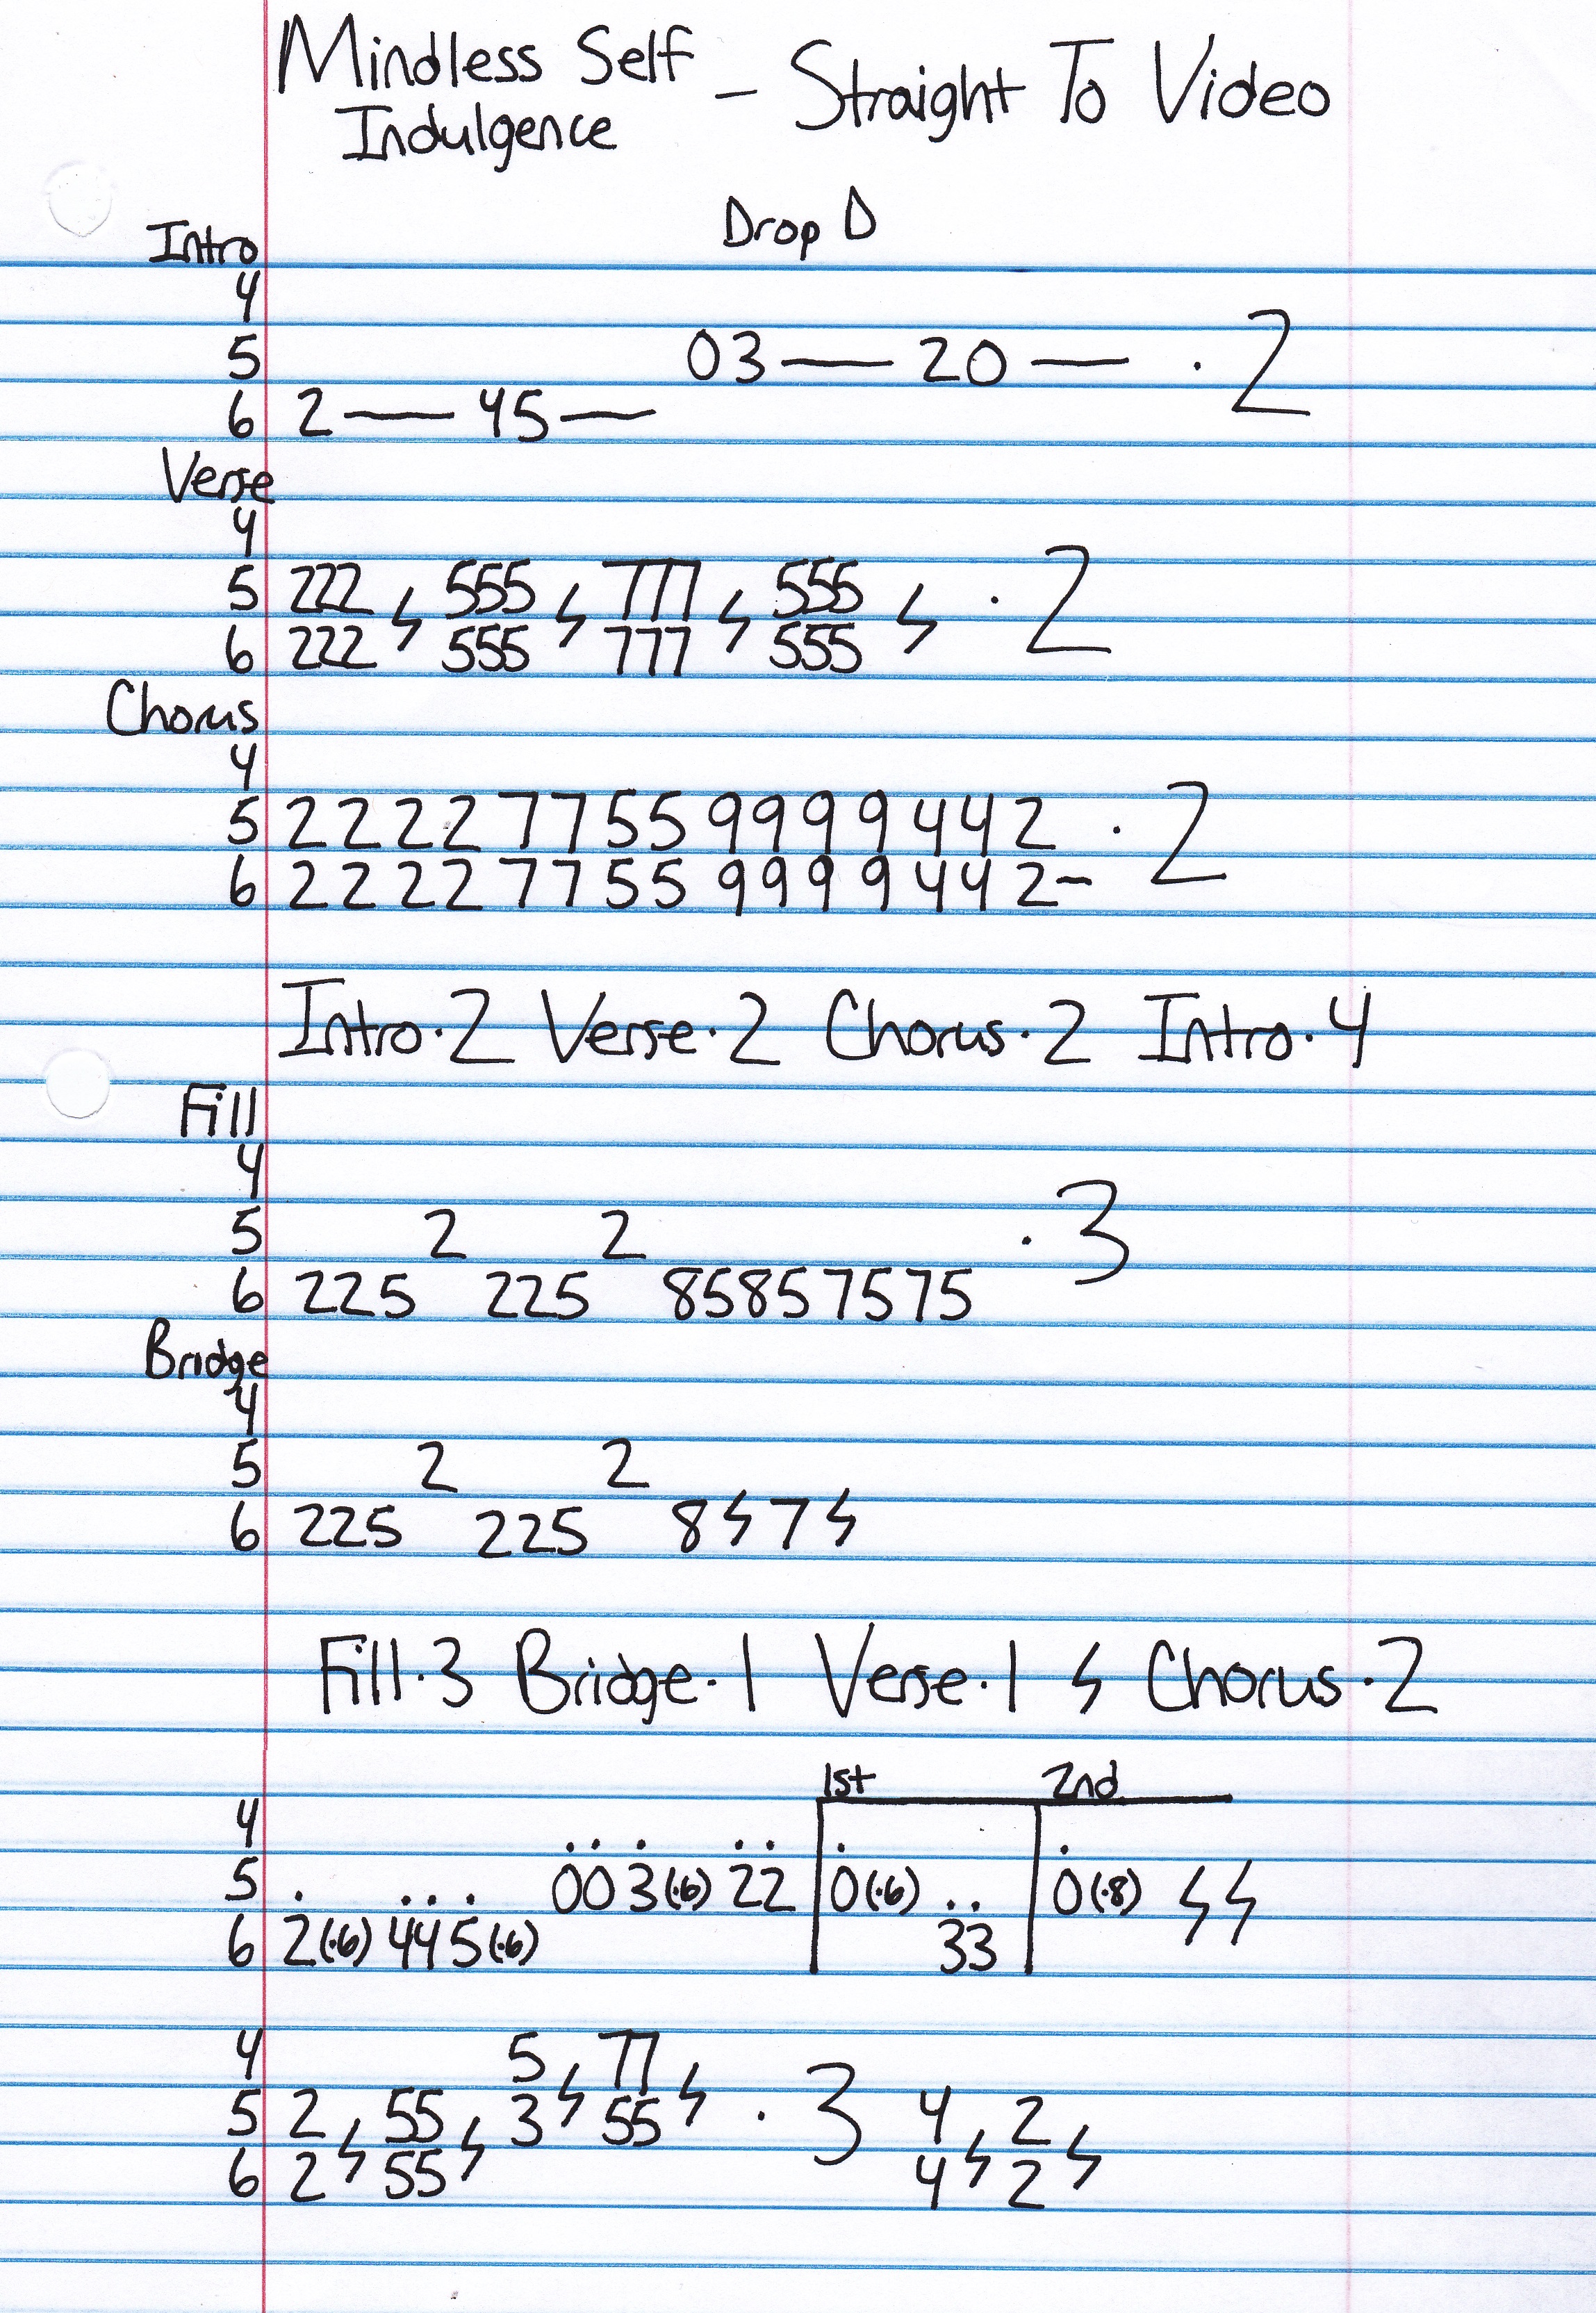 Mindless Self
Indulgence - Straight To Video
Drop D
Intro
4
5 03 — 20 — · 2
6 2 — 45 —
Verse
4
5 222 ϟ 555 ϟ 777 ϟ 555 ϟ · 2
6 222 555 777 555
Chorus
4
5 2 2 2 2 7 7 5 5 9 9 9 9 4 4 2 · 2
6 2 2 2 2 7 7 5 5 9 9 9 9 4 4 2-
Intro·2 Verse·2 Chorus·2 Intro·4
Fill
4
5 2 2 · 3
6 225 225 85857575
Bridge
4
5 2 2
6 225 225 8 ϟ 7 ϟ
Fill·3 Bridge·1 Verse·1 ϟ Chorus·2
1st 2nd
4
5 003(·6) 22 0(·6) 0(·8) ϟ ϟ
6 2(·6) 445(·6) 33
4 5 ϟ 77 ϟ
5 2 ϟ 55 ϟ 3 55 · 3 4 ϟ 2 ϟ
6 2 55 4 2